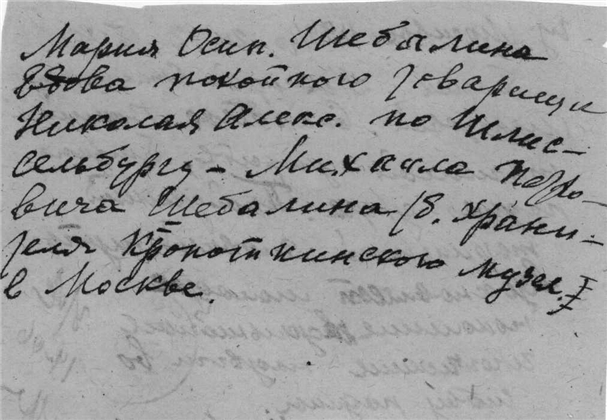 Мария Осип. Шебылина
вдова покойного товарища
Николая Алекс. по Шлис-
сельбургу – Михаила Петро-
вича Шебалина (б. храни-
теля Кропоткинского музея.
в Москве.